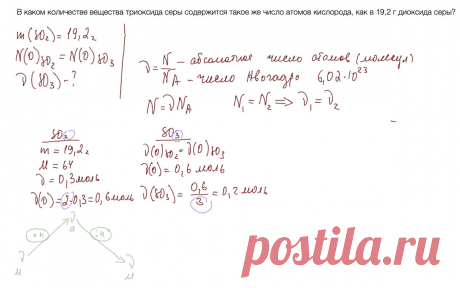 В каком количестве вещества триоксида серы содержится такое же число атомов кислорода, как в 19,2 г диоксида серы?
m(SO₂) = 19,2 г
N(O)SO₂ = N(O)SO₃
ν(SO₃) - ?
ν = N/NA
N - абсолютное число атомов (молекул)
NA - число Авогадро 6,02·10²³
N = νNA
N₁ = N₂ ⟹ ν₁ = ν₂
SO₂
m = 19,2 г
M = 64
ν = 0,3 моль
ν(O) = 2·0,3 = 0,6 моль
SO₃
ν(O)SO₂ = ν(O)SO₃
ν(O) = 0,6 моль
ν(SO₃) = 0,6/3 = 0,2 моль
posti.ru